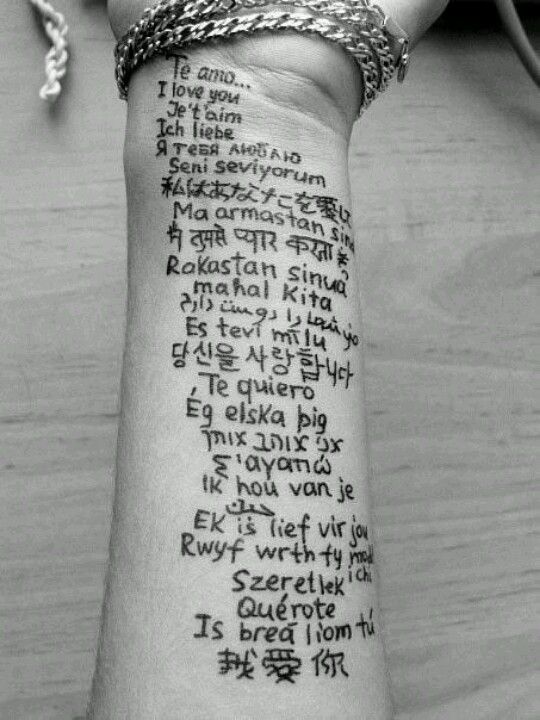 Te amo...
I love you
Je't'aim
Ich liebe
Я тебя люблю
Seni seviyorum
私はあなたこを愛して
Ma armastan sind
मैं तुमसे प्यार करता
Rakastan sinua
mahal Kita
شما را دوست دارم
Es tevi mīlu
당신을 사랑합니다
Te quiero
Ég elska þig
אני אוהב אותך
Σ'αγαπώ
Ik hou van je
Ek is lief vir jou
Rwyf wrth fy modd
ichi
Szeretlek
Quérote
Is breá liom tú
我愛你